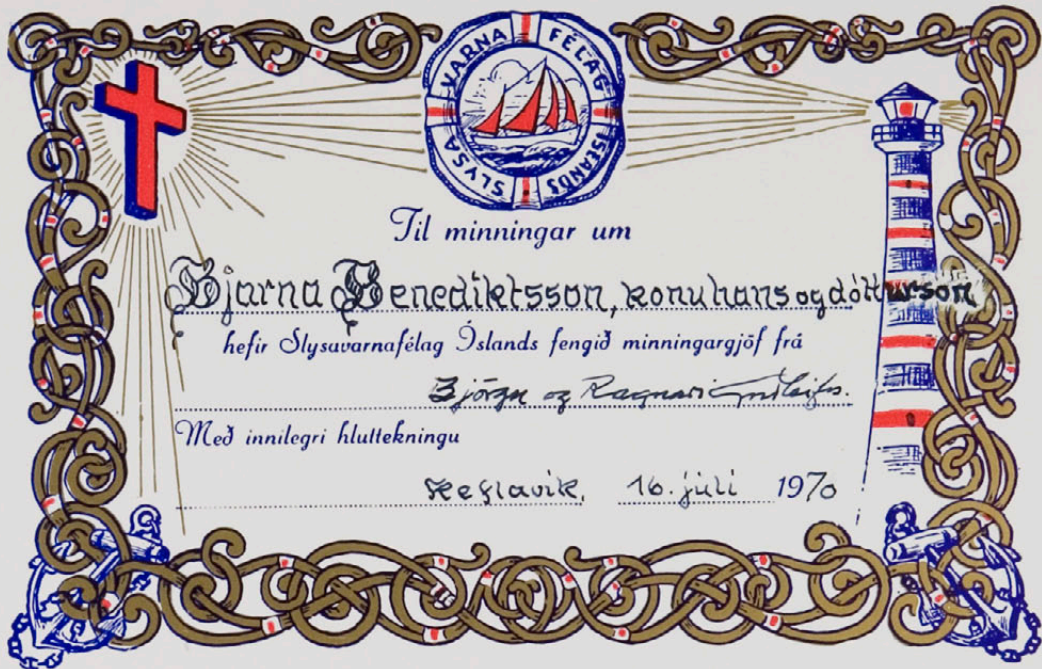 SLYSAVARNA FÉLAG ÍSLANDS
Til minningar um
Bjarna Benediktsson, konu hans og dótturson
hefir Slysavarnafélag Íslands fengið minningargjöf frá
Björgu og Ragnari
Með innilegri hluttekningu
Keflavík, 16. júlí 1970